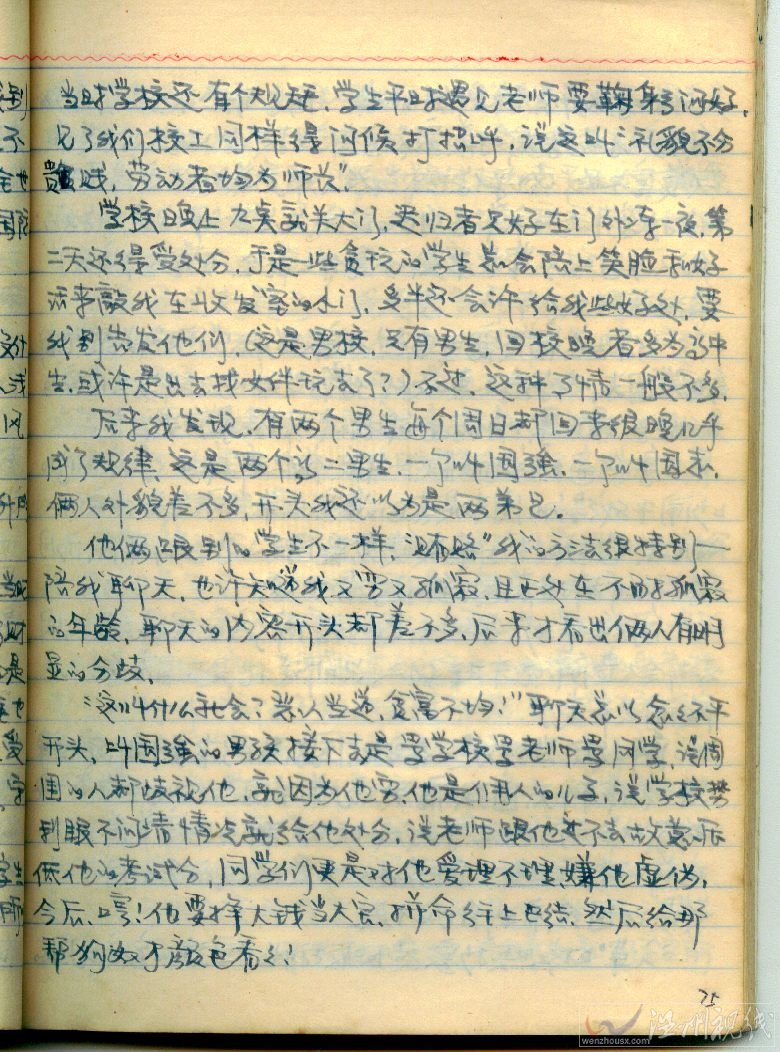 当时学校还有个规矩，学生平时遇见老师要鞠躬问好，
见了我们校工同样得问候打招呼，说这叫“礼貌不分
贵贱，劳动者均为师长”。
学校晚上九点就关大门，迟归者只好在门外冻一夜，第
二天还得受处分，于是一些贪玩的学生总会陪上笑脸和好
话来敲我在收发室的小门，多半还会许给我些好处，要
我别告发他们，（这是男校，只有男生，回校晚者多为高中
生，或许是出去找女伴玩去了？）不过，这种事情一般不多，
后来我发现，有两个男生每个周日都回来很晚几乎
成了规律，这是两个高二男生，一个叫国强，一个叫国
俩人外貌差不多，开头我还以为是两弟兄。
他俩跟别的学生不一样，“贿赂”我的方法很特别——
陪我聊天，也许知道我又穷又孤寂，且正处在不耐孤寂
的年龄，聊天的内容开头都差不多，后来才看出俩人有明
显的分歧，
“这叫什么社会？恶人当道，贫富不均！”聊天总以忿忿不平
开头，叫国强的男孩接下去是骂学校骂老师骂同学，说周
围的人都歧视他，就因为他穷，他是佣人的儿子，说学校势
利眼不问清情况就给他处分，说老师跟他过不去故意压
低他的考试分，同学们更是对他爱理不理，嫌他虚伪，
今后，哼！他要挣大钱当大官，拼命往上巴结，然后给那
帮狗奴才颜色看看！
75
温州视线
wenzhousx.com